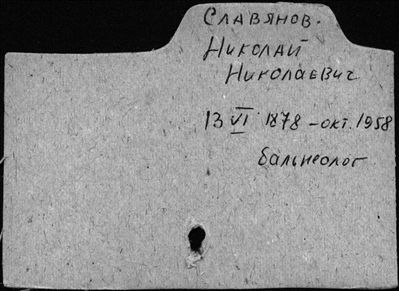 Славянов.
Николай
Николаевич
13 VI 1878 – окт. 1958
бальнеолог